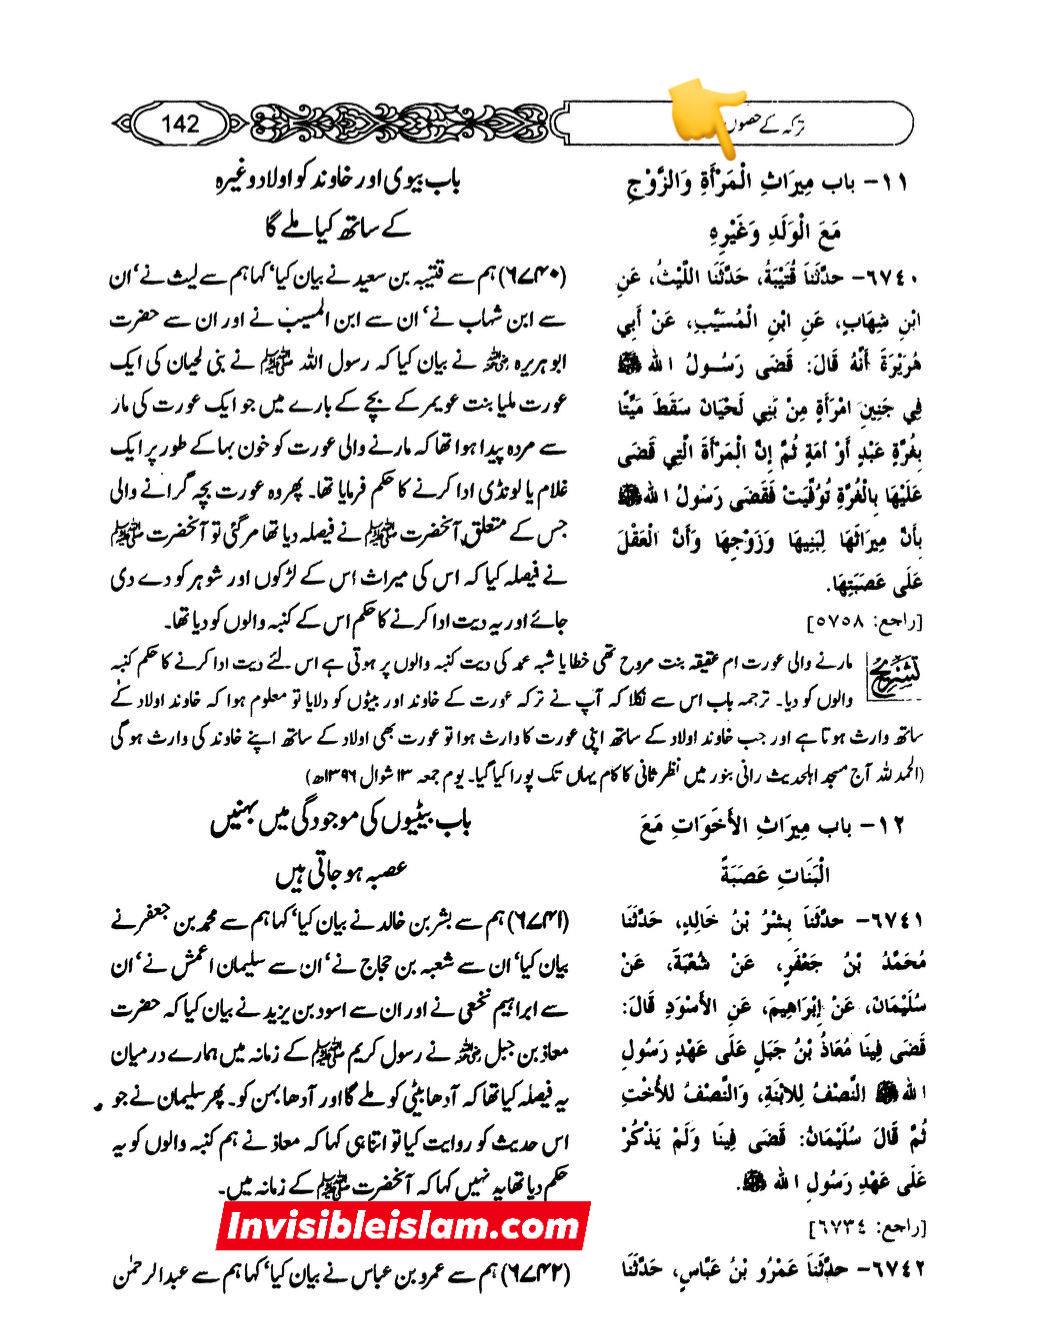 142
ترکہ کے حصوں
۱۱- باب مِيرَاثِ الْمَرْأَةِ وَالزَّوْجِ
مَعَ الْوَلَدِ وَغَيْرِهِ
٦٧٤٠- حدَّثَنَا قُتَيْبَةُ، حَدَّثَنَا اللَّيْثُ، عَنِ
ابْنِ شِهَابٍ، عَنِ ابْنِ الْمُسَيَّبِ، عَنْ أَبِي
هُرَيْرَةَ أَنَّهُ قَالَ: قَضَى رَسُولُ اللهِ ﷺ
فِي جَنِينِ امْرَأَةٍ مِنْ بَنِي لَحْيَانَ سَقَطَ مَيِّتًا
بِغُرَّةٍ عَبْدٍ أَوْ أمَةٍ ثُمَّ إِنَّ الْمَرْأَةَ الَّتِي قَضَى
عَلَيْهَا بِالْغُرَّةِ تُوُفِّيَتْ فَقَضَى رَسُولُ اللهِ ﷺ
بِأَنَّ مِيرَاثَهَا لِبَنِيهَا وَزَوْجِهَا وَأَنَّ الْعَقْلَ
عَلَى عَصَبَتِهَا.
[راجع: ٥٧٥٨]
باب بیوی اور خاوند کو اولاد وغیرہ
کے ساتھ کیا ملے گا
(۶۷۴۰) ہم سے قتیبہ بن سعید نے بیان کیا‘ کہا ہم سے لیث نے‘ ان
سے ابن شہاب نے‘ ان سے ابن المسیب نے اور ان سے حضرت
ابو ہریرہ رضی اللہ عنہ نے بیان کیا کہ رسول اللہ ﷺ نے بنی لحیان کی ایک
عورت ملیا بنت عویمر کے بچے کے بارے میں جو ایک عورت کی مار
سے مردہ پیدا ہوا تھا کہ مارنے والی عورت کو خون بہا کے طور پر ایک
غلام یا لونڈی ادا کرنے کا حکم فرمایا تھا۔ پھر وہ عورت بچہ گرانے والی
جس کے متعلق آنحضرت ﷺ نے فیصلہ دیا تھا مر گئی تو آنحضرت ﷺ
نے فیصلہ کیا کہ اس کی میراث اس کے لڑکوں اور شوہر کو دے دی
جائے اور یہ دیت ادا کرنے کا حکم اس کے کنبہ والوں کو دیا تھا۔
تشریح مارنے والی عورت ام عقیقہ بنت مروح تھی خطا یا شبہ عمد کی دیت کنبہ والوں پر ہوتی ہے اس لئے دیت ادا کرنے کا حکم کنبہ
والوں کو دیا۔ ترجمہ باب اس سے نکلا کہ آپ نے ترکہ عورت کے خاوند اور بیٹوں کو دلایا تو معلوم ہوا کہ خاوند اولاد کے
ساتھ وارث ہوتا ہے اور جب خاوند اولاد کے ساتھ اپنی عورت کا وارث ہوا تو عورت بھی اولاد کے ساتھ اپنے خاوند کی وارث ہوگی
(الحمد للہ آج مسجد اہلحدیث رانی بنور میں نظر ثانی کا کام یہاں تک پورا کیا گیا۔ یوم جمعہ ۱۳ شوال ۱۳۹۶ھ)
۱۲- باب مِيرَاثِ الأَخَوَاتِ مَعَ
الْبَنَاتِ عَصَبَةً
٦٧٤١- حدَّثَنَا بِشْرُ بْنُ خَالِدٍ، حَدَّثَنَا
مُحَمَّدُ بْنُ جَعْفَرٍ، عَنْ شُعْبَةَ، عَنْ
سُلَيْمَانَ، عَنْ إِبْرَاهِيمَ، عَنِ الأَسْوَدِ قَالَ:
قَضَى فِينَا مُعَاذُ بْنُ جَبَلٍ عَلَى عَهْدِ رَسُولِ
اللهِ ﷺ النِّصْفُ لِلابْنَةِ، وَالنِّصْفُ لِلأُخْتِ
ثُمَّ قَالَ سُلَيْمَانُ: قَضَى فِينَا وَلَمْ يَذْكُرْ
عَلَى عَهْدِ رَسُولِ اللهِ ﷺ.
[راجع: ٦٧٣٤]
٦٧٤٢- حدَّثَنَا عَمْرُو بْنُ عَبَّاسٍ، حَدَّثَنَا
باب بیٹیوں کی موجودگی میں بہنیں
عصبہ ہو جاتی ہیں
(۶۷۴۱) ہم سے بشر بن خالد نے بیان کیا‘ کہا ہم سے محمد بن جعفر نے
بیان کیا‘ ان سے شعبہ بن حجاج نے‘ ان سے سلیمان اعمش نے‘ ان
سے ابراہیم نخعی نے اور ان سے اسود بن یزید نے بیان کیا کہ حضرت
معاذ بن جبل رضی اللہ عنہ نے رسول کریم ﷺ کے زمانہ میں ہمارے درمیان
یہ فیصلہ کیا تھا کہ آدھا بیٹی کو ملے گا اور آدھا بہن کو۔ پھر سلیمان نے جو
اس حدیث کو روایت کیا تو اتنا ہی کہا کہ معاذ نے ہم کنبہ والوں کو یہ
حکم دیا تھا یہ نہیں کہا کہ آنحضرت ﷺ کے زمانہ میں۔
Invisibleislam.com
(۶۷۴۲) ہم سے عمرو بن عباس نے بیان کیا‘ کہا ہم سے عبدالرحمٰن